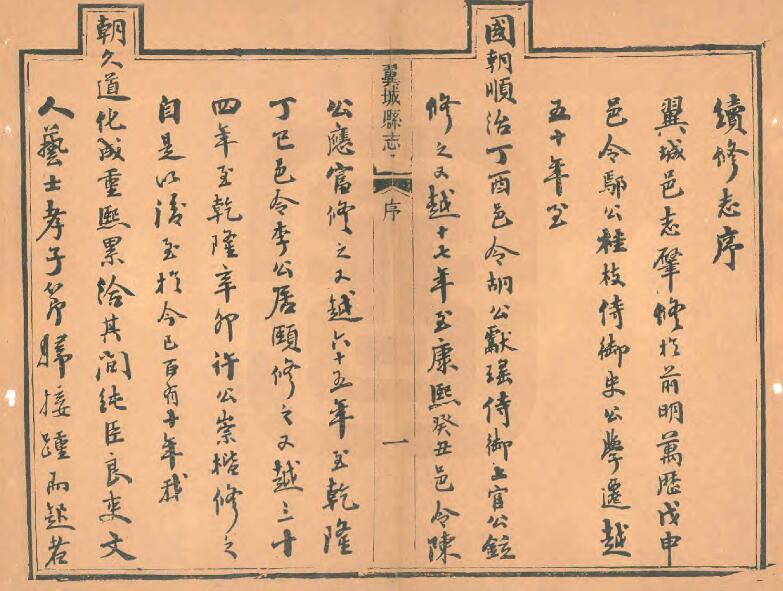 續修志序
翼城邑志肇修於前明萬歷戊申
邑令鄢公桂枝侍御史公學遷越
五十年至
國朝順治丁酉邑令胡公獻瑤侍御上官公鉝
修之又越十七年至康熙癸丑邑令陳
翼城縣志
序
一
公應富修之又越六十五年至乾隆
丁巳邑令李公居頤修之又越三十
四年至乾隆辛卯許公崇楷修之
自是以後至於今已百有十年我
朝久道化成重熙累洽其間純臣良吏文
人藝士孝子節婦接踵而起若